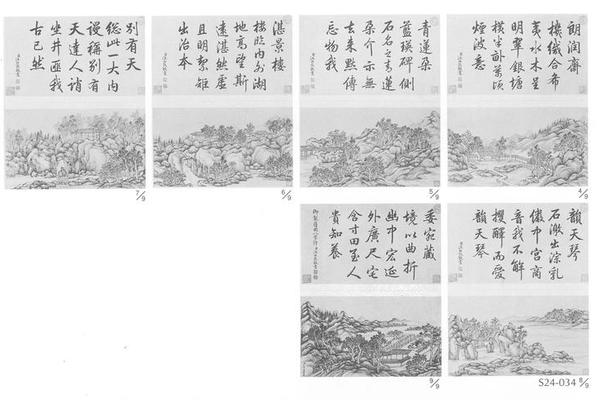 朗潤齋
夷水木呈
明翠銀塘
煙波意
4/9
青蓮朵
藍瑛碑側
石名之青蓮
朵介示無
去來默傳
忘物我
5/9
湛景樓
樓臨內外湖
地高望斯
遠湛然虛
且明絜矩
出治本
6/9
別有天
總此一大內
謾稱別有
天達人誚
坐井匪我
古已然
7/9
韻天琴
石漱出淙乳
中宮商
音我不解
而愛
韻天琴
S24-034 8/9
委宛藏
境以曲折
幽中宏延
外廣尺宅
含寸田至人
貴知養
9/9